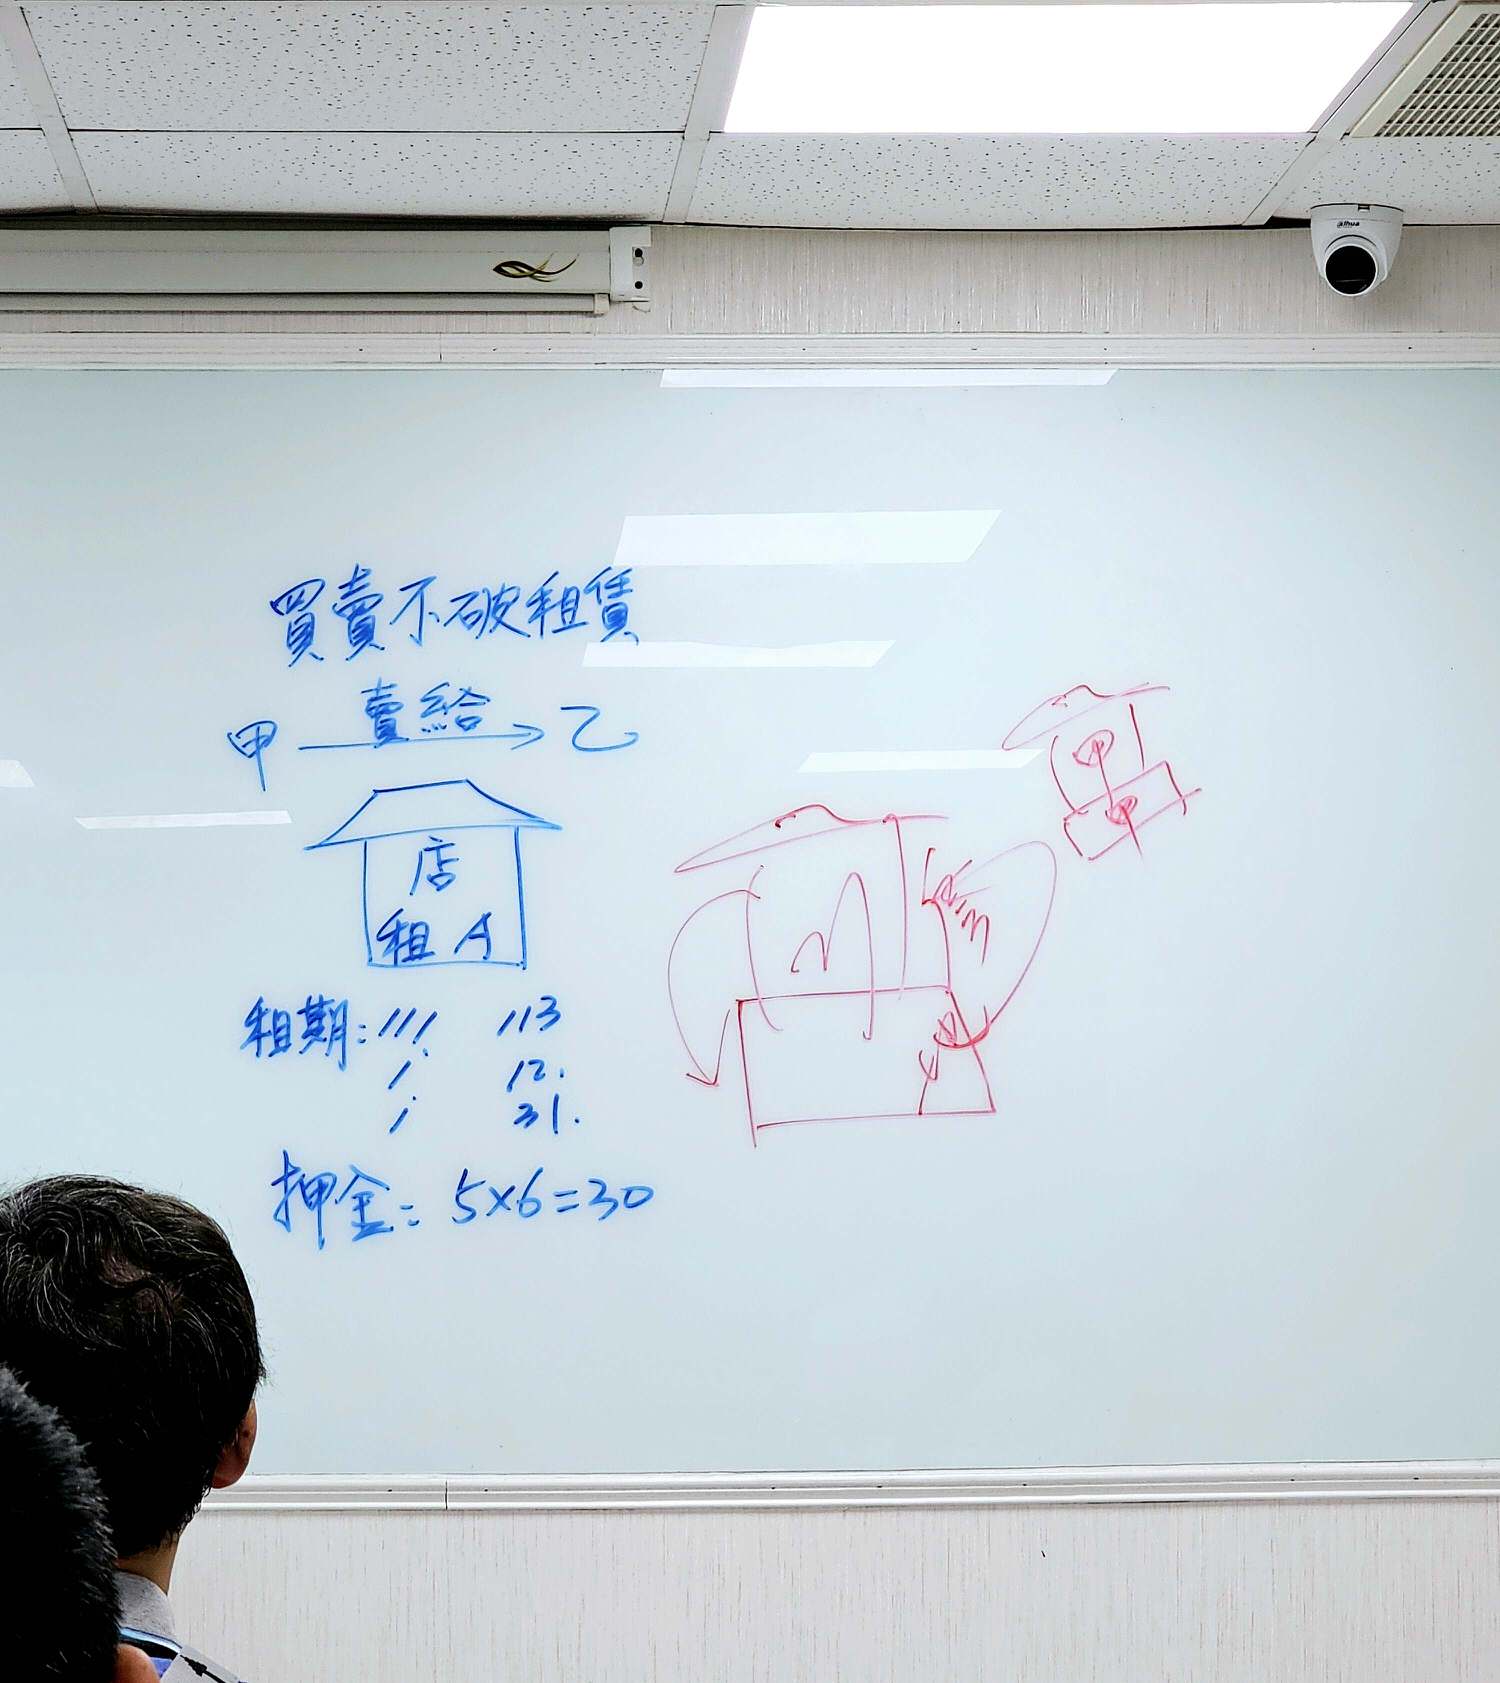 alhua
買賣不破租賃
甲 賣給 乙
店
租 A
租期: 111. 113
1. 12.
1 31.
押金: 5×6=30
甲
甲